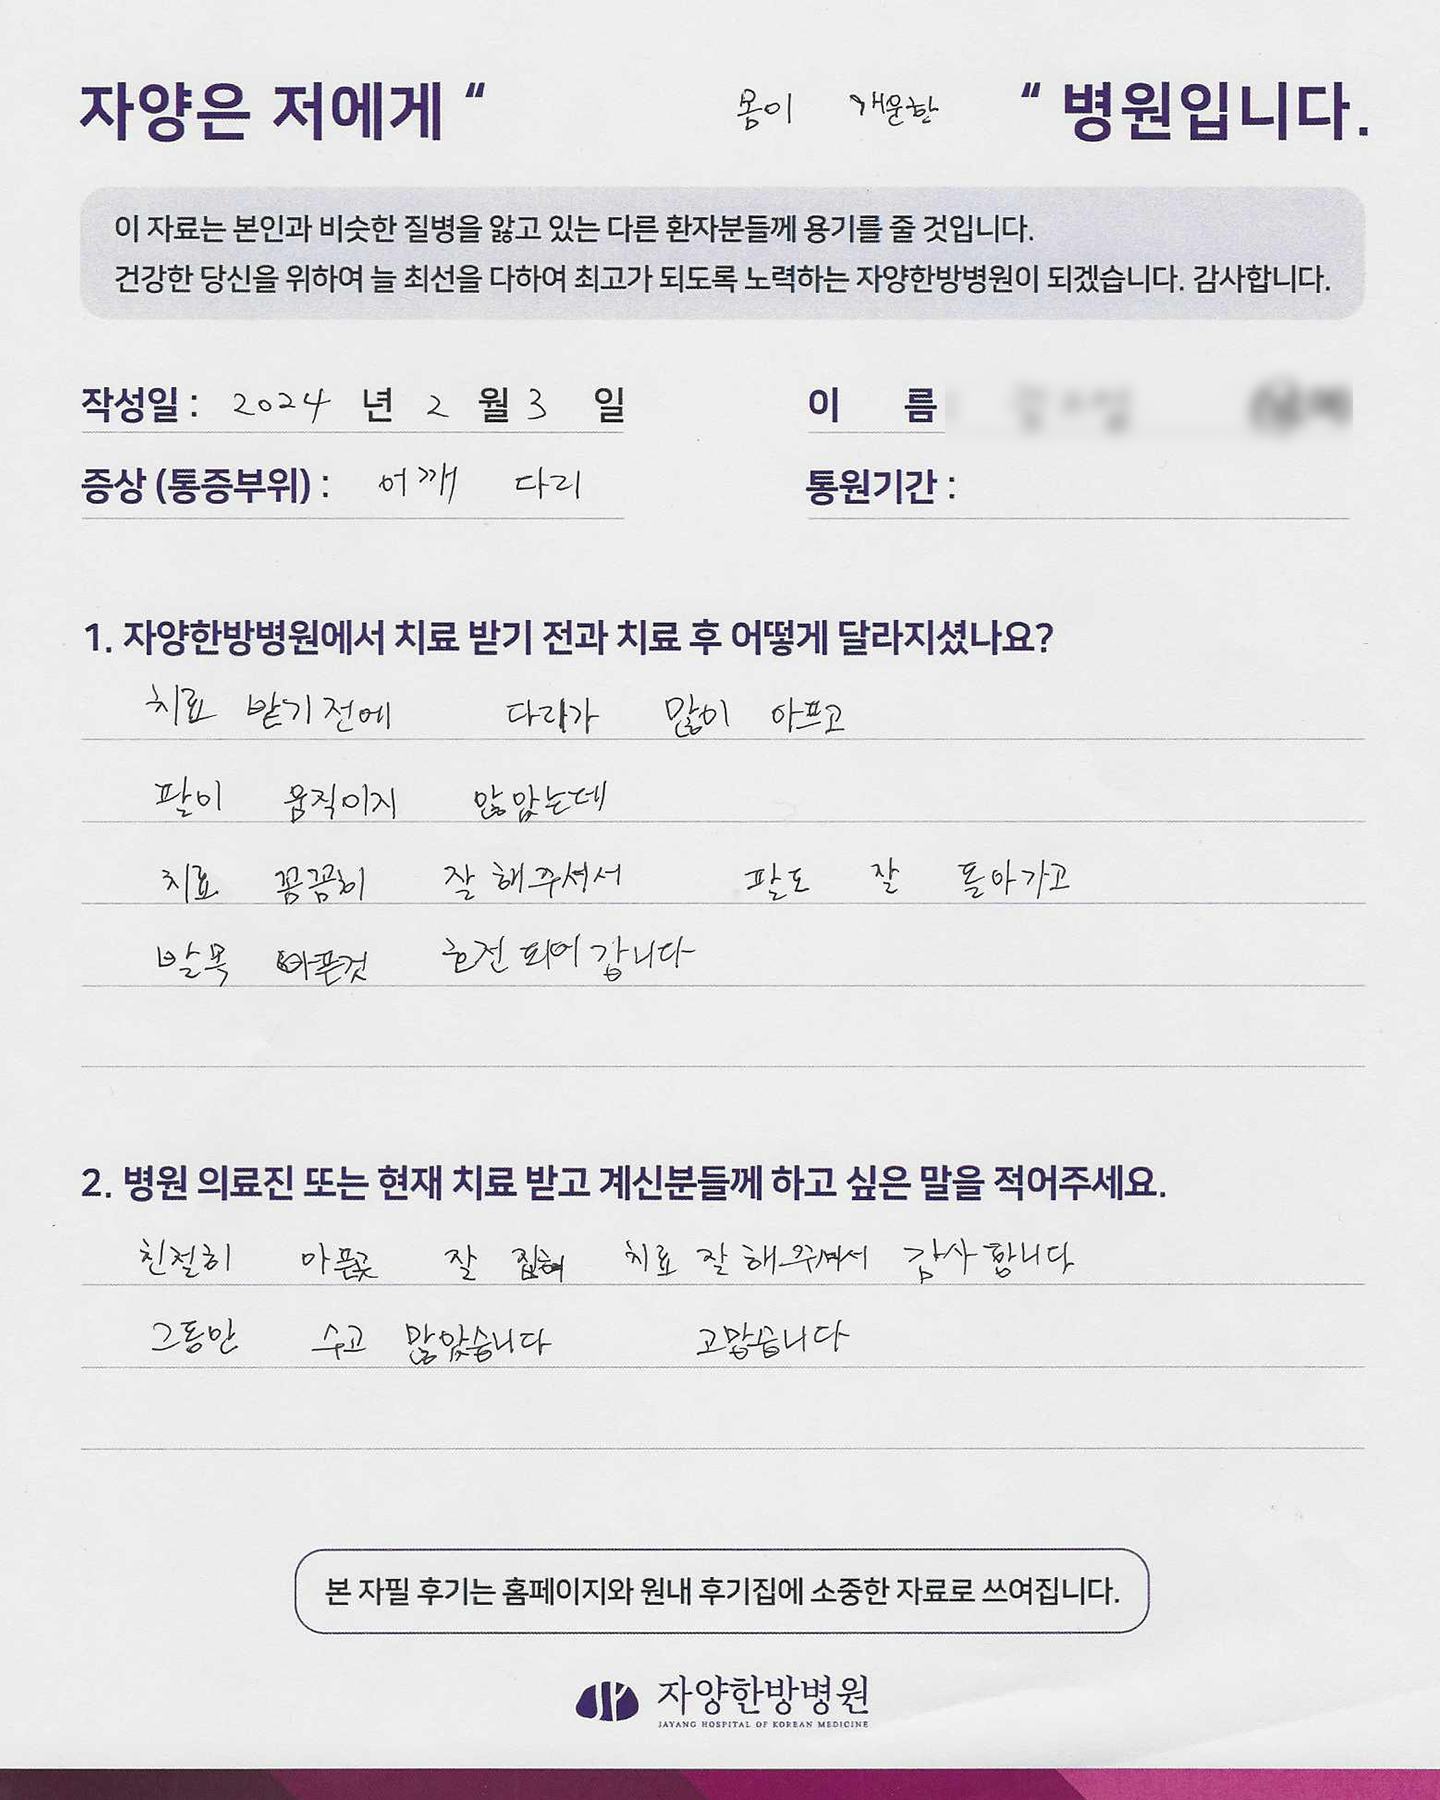 자양은 저에게 " 몸이 개운한 " 병원입니다.
이 자료는 본인과 비슷한 질병을 앓고 있는 다른 환자분들께 용기를 줄 것입니다.
건강한 당신을 위하여 늘 최선을 다하여 최고가 되도록 노력하는 자양한방병원이 되겠습니다. 감사합니다.
작성일 : 2024 년 2 월 3 일 이 름
증상 (통증부위) : 어깨 다리 통원기간 :
1. 자양한방병원에서 치료 받기 전과 치료 후 어떻게 달라지셨나요?
치료 받기전에 다리가 많이 아프고
팔이 움직이지 않았는데
치료 꼼꼼히 잘 해주셔서 팔도 잘 돌아가고
발목 아픈것 호전 되어 갑니다
2. 병원 의료진 또는 현재 치료 받고 계신분들께 하고 싶은 말을 적어주세요.
친절히 아픈곳 잘 치료 잘 해주셔서 감사 합니다
그동안 수고 많았습니다 고맙습니다
본 자필 후기는 홈페이지와 원내 후기집에 소중한 자료로 쓰여집니다.
자양한방병원
JAYANG HOSPITAL OF KOREAN MEDICINE